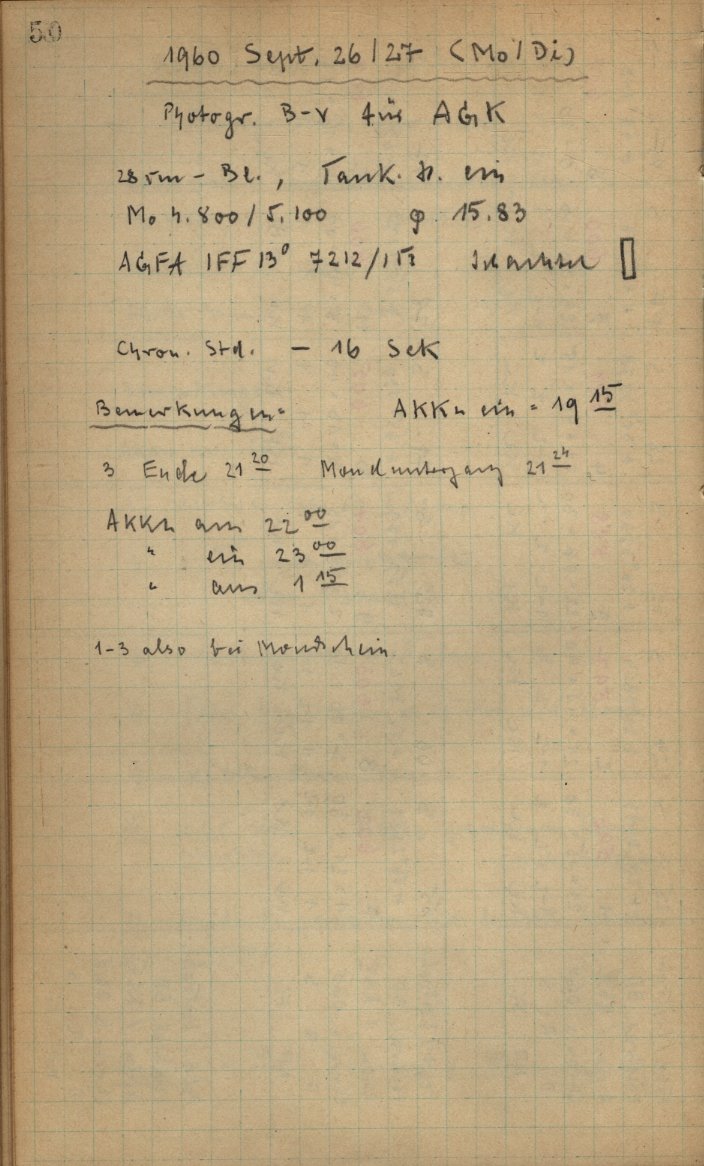 50
1960 Sept. 26/27 (Mo/Di)
Photogr. B-V für AGK
28 cm - Bl., Tauk. H. ein
Mo 4.800/5.100 φ 15.83
AGFA IFF 13° 7212/153 Schachtel
Chron. Std. - 16 Sek
Bemerkungen: AKKu ein = 19 15
3 Ende 21 20 Monduntergang 21 24
AKKu aus 22 00
" ein 23 00
" aus 1 15
1-3 also bei Mondschein.